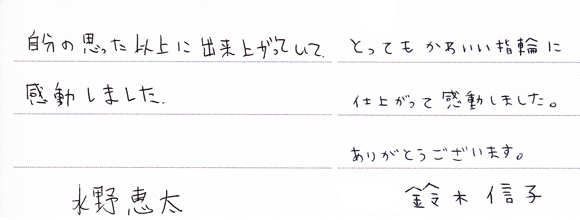 自分の思った以上に出来上がっていて、
感動しました。
水野恵太
とってもかわいい指輪に
仕上がって感動しました。
ありがとうございます。
鈴木信子